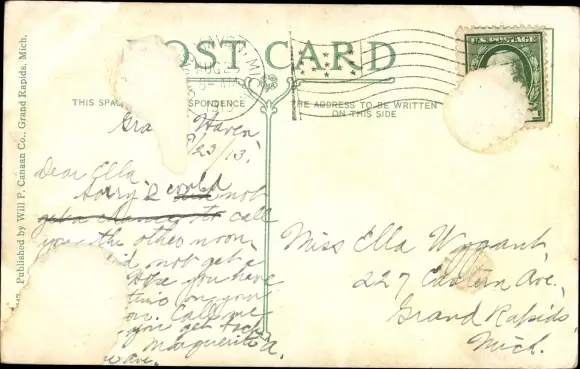 POST CARD
THIS SPAC SPONDENCE
THE ADDRESS TO BE WRITTEN
ON THIS SIDE
U.S. POSTAGE
Published by Will P. Canaan Co., Grand Rapids, Mich.
Gra Haven
/23/13.
Dear Ella
Sorry I could not
call
you the other noon,
not get a
you have
time on your
Call me
you get back
Marguerite A.
ave.
Miss Ella Wygant,
227 Eastern Ave.,
Grand Rapids,
Mich.